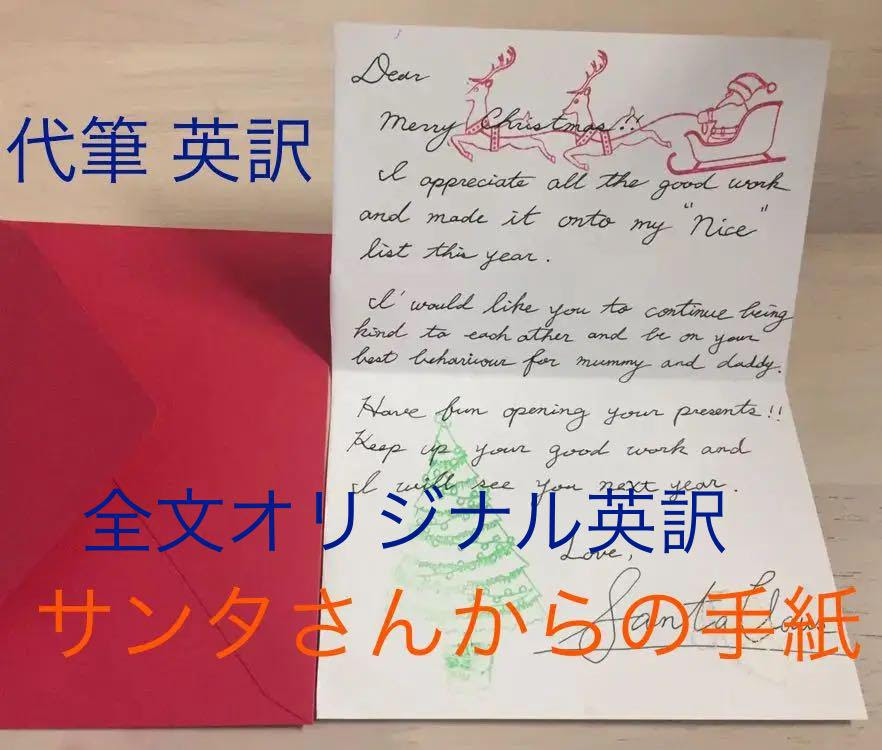 代筆 英訳
Dear
Merry Christmas!!
I appreciate all the good work
and made it onto my "Nice"
list this year.
I would like you to continue being
kind to each other and be on your
best behariuour for mummy and daddy.
Have fun opening your presents!!
Keep up your good work and
I will see you next year.
全文オリジナル英訳
Love,
サンタさんからの手紙
Santa Claus